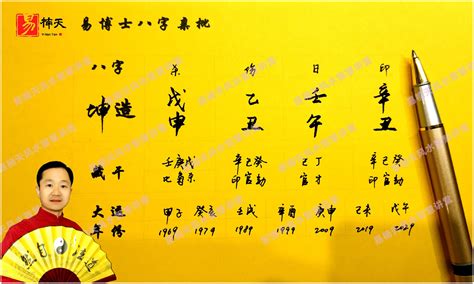 易 神天 易博士八字集批
八字 杀 伤 日 印
坤造 戊 乙 壬 辛
申 丑 午 丑
藏干 壬庚戊 辛己癸 己丁 辛己癸
比枭杀 印官劫 官才 印官劫
大运 甲子 癸亥 壬戌 辛酉 庚申 己未 戊午
年份 1969 1979 1989 1999 2009 2019 2029